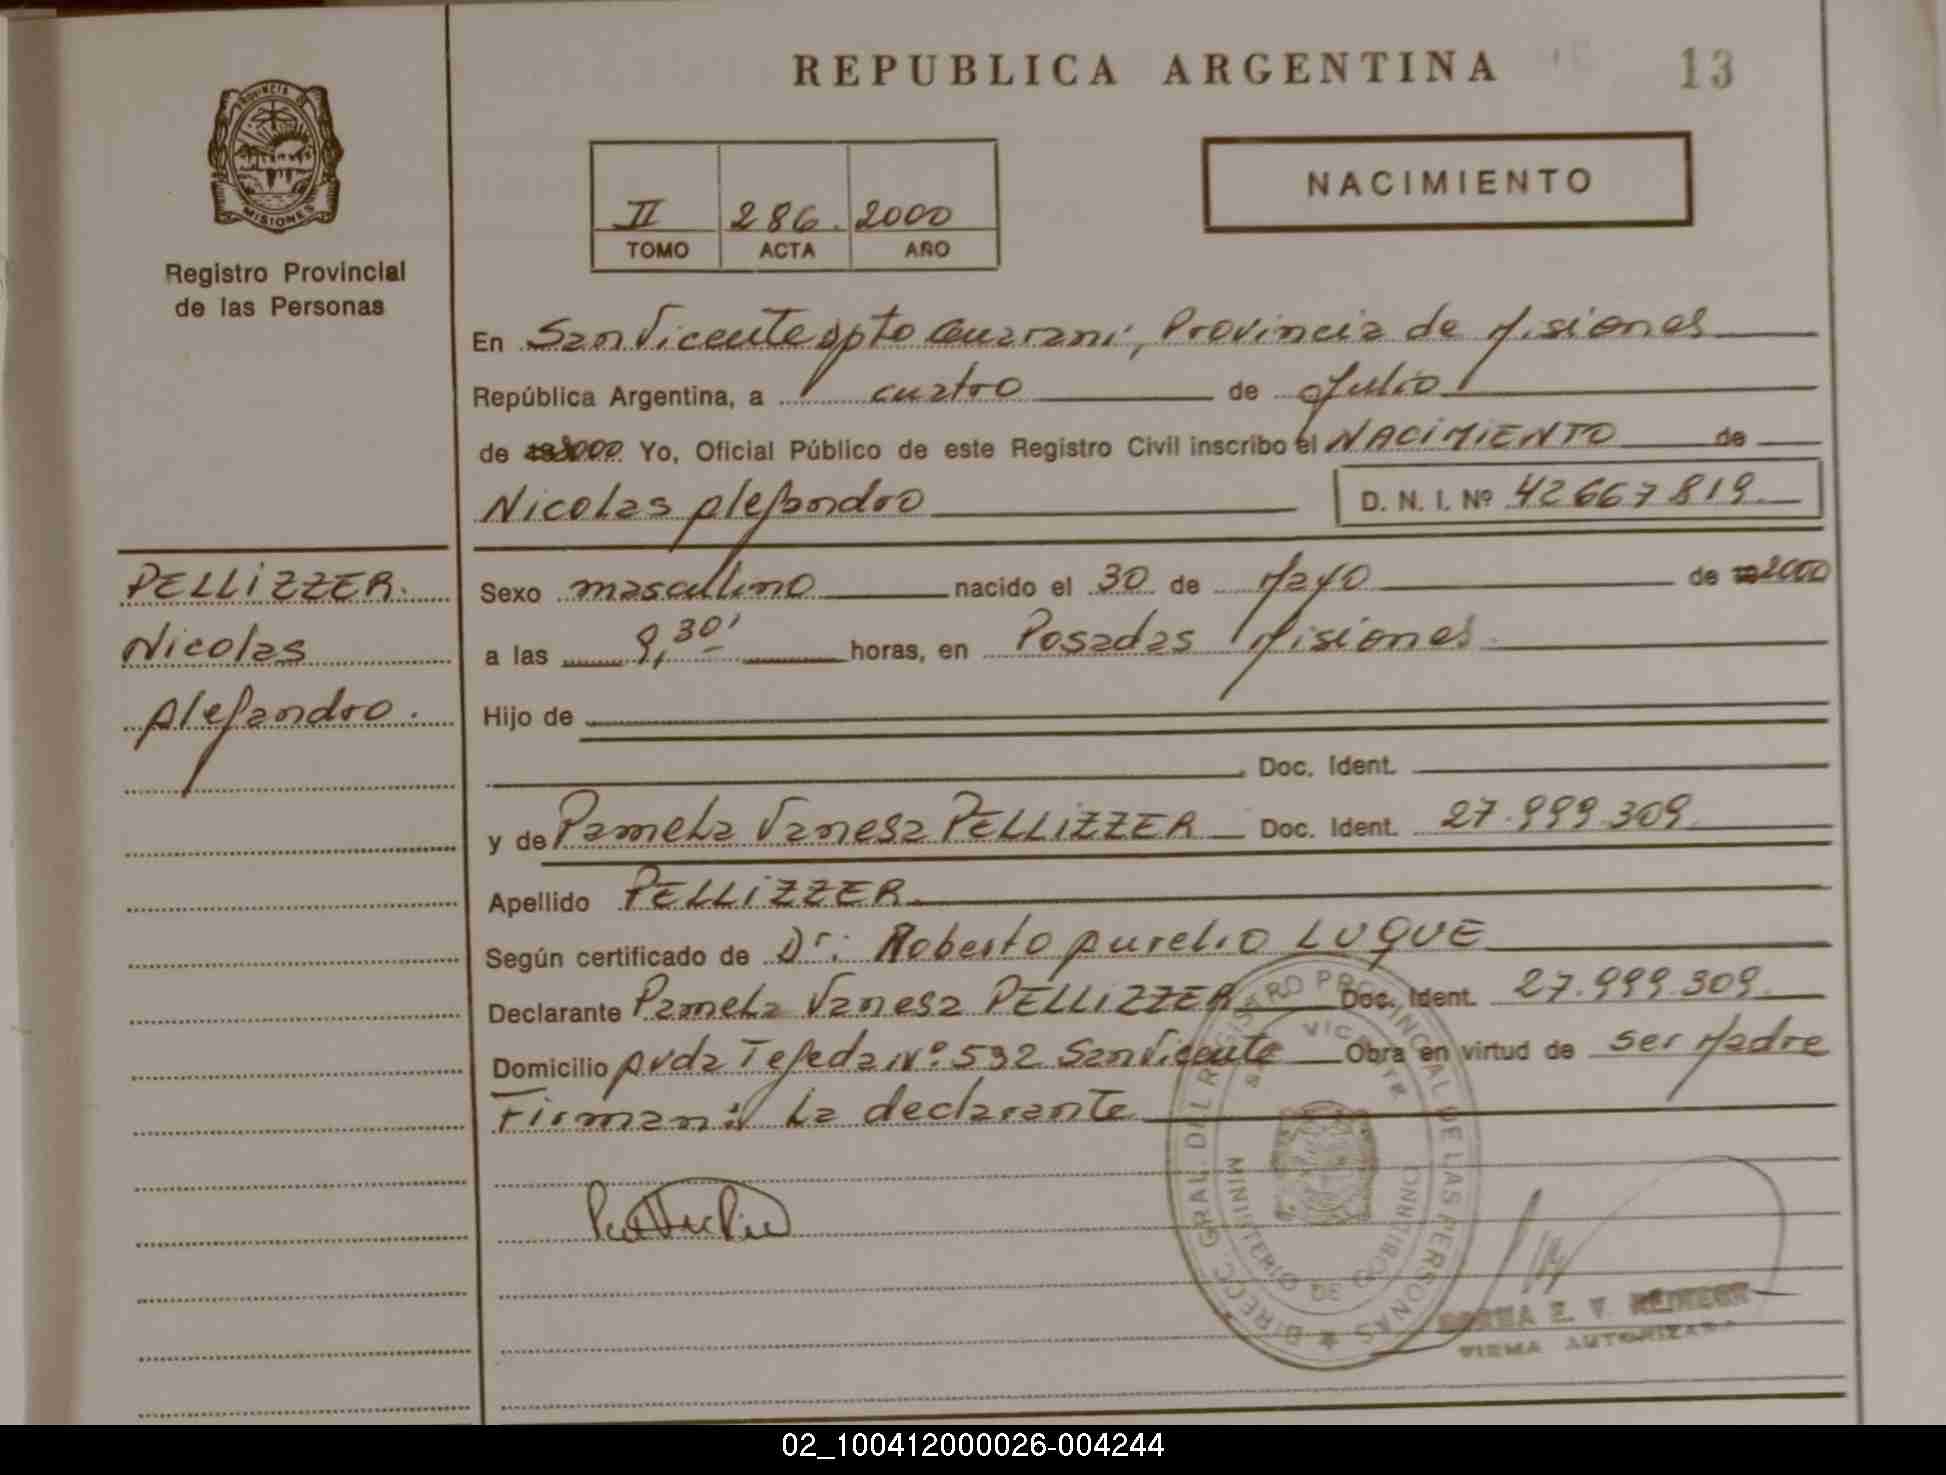 REPUBLICA ARGENTINA
13
PROVINCIA DE
MISIONES
Registro Provincial
de las Personas
II 286. 2000
TOMO ACTA AÑO
NACIMIENTO
En San Vicente dpto Guarani, Provincia de Misiones
República Argentina, a cuatro de Julio
de 2000 Yo, Oficial Público de este Registro Civil inscribo el NACIMIENTO de
Nicolas Alejandro D. N. I. Nº 42667819
PELLIZZER.
Nicolas
Alejandro.
Sexo masculino nacido el 30 de Mayo de 2000
a las 9,30' horas, en Posadas Misiones.
Hijo de
Doc. Ident.
y de Pamela Vanesa PELLIZZER Doc. Ident. 27.999.309
Apellido PELLIZZER.
Según certificado de Dr: Roberto Aurelio LUQUE
Declarante Pamela Vanesa PELLIZZER Doc. Ident. 27.999.309
Domicilio Avda Tejeda Nº 532 San Vicente Obra en virtud de ser Madre
Firman: La declarante
DIRECC. GRAL. DEL REGISTRO PROVINCIAL DE LAS PERSONAS
SAN VICENTE
MINISTERIO DE GOBIERNO
E. V.
FIRMA AUTORIZADA
02_100412000026-004244